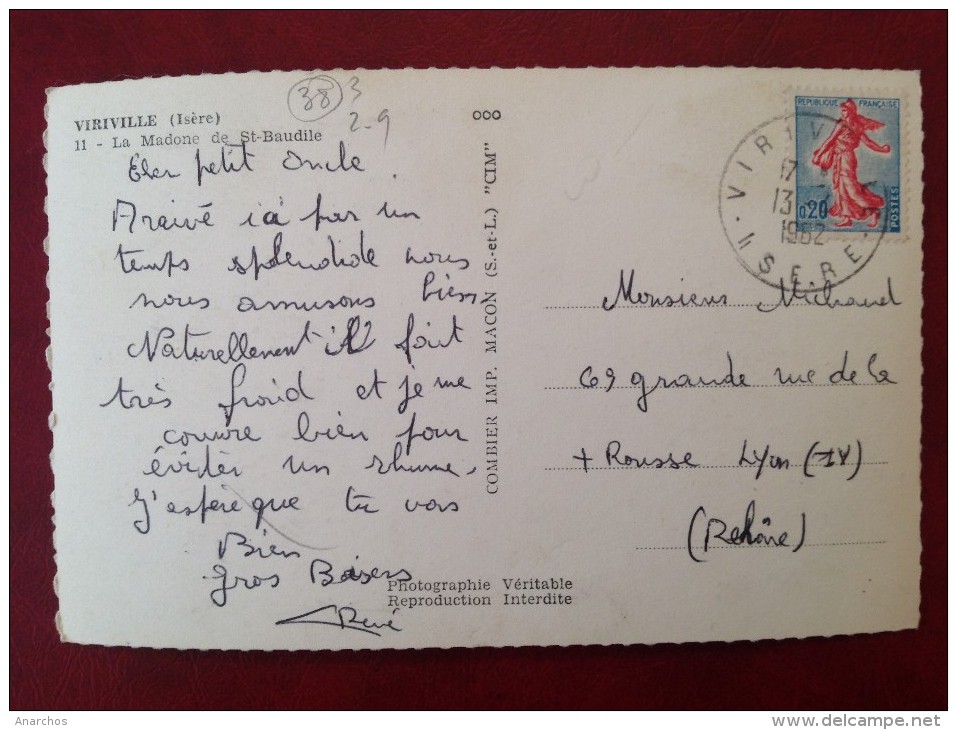 VIRIVILLE (Isère)
11 - La Madone de St-Baudile
38
3
2-9
Cher petit Oncle.
Arrivé ici par un
temps splendide nous
nous amusons bien
Naturellement il fait
très froid et je me
couvre bien pour
éviter un rhume.
J'espère que tu vas
Bien
Gros Baisers
René
Photographie Véritable
Reproduction Interdite
ooo
COMBIER IMP. MACON (S.-et-L.) "CIM"
REPUBLIQUE FRANÇAISE
0,20
POSTES
VIRIV
17
13
1962
ISERE
Monsieur Michaud
69 grande rue de la
+ Rousse Lyon (IV)
(Rhône)
Anarchos
www.delcampe.net